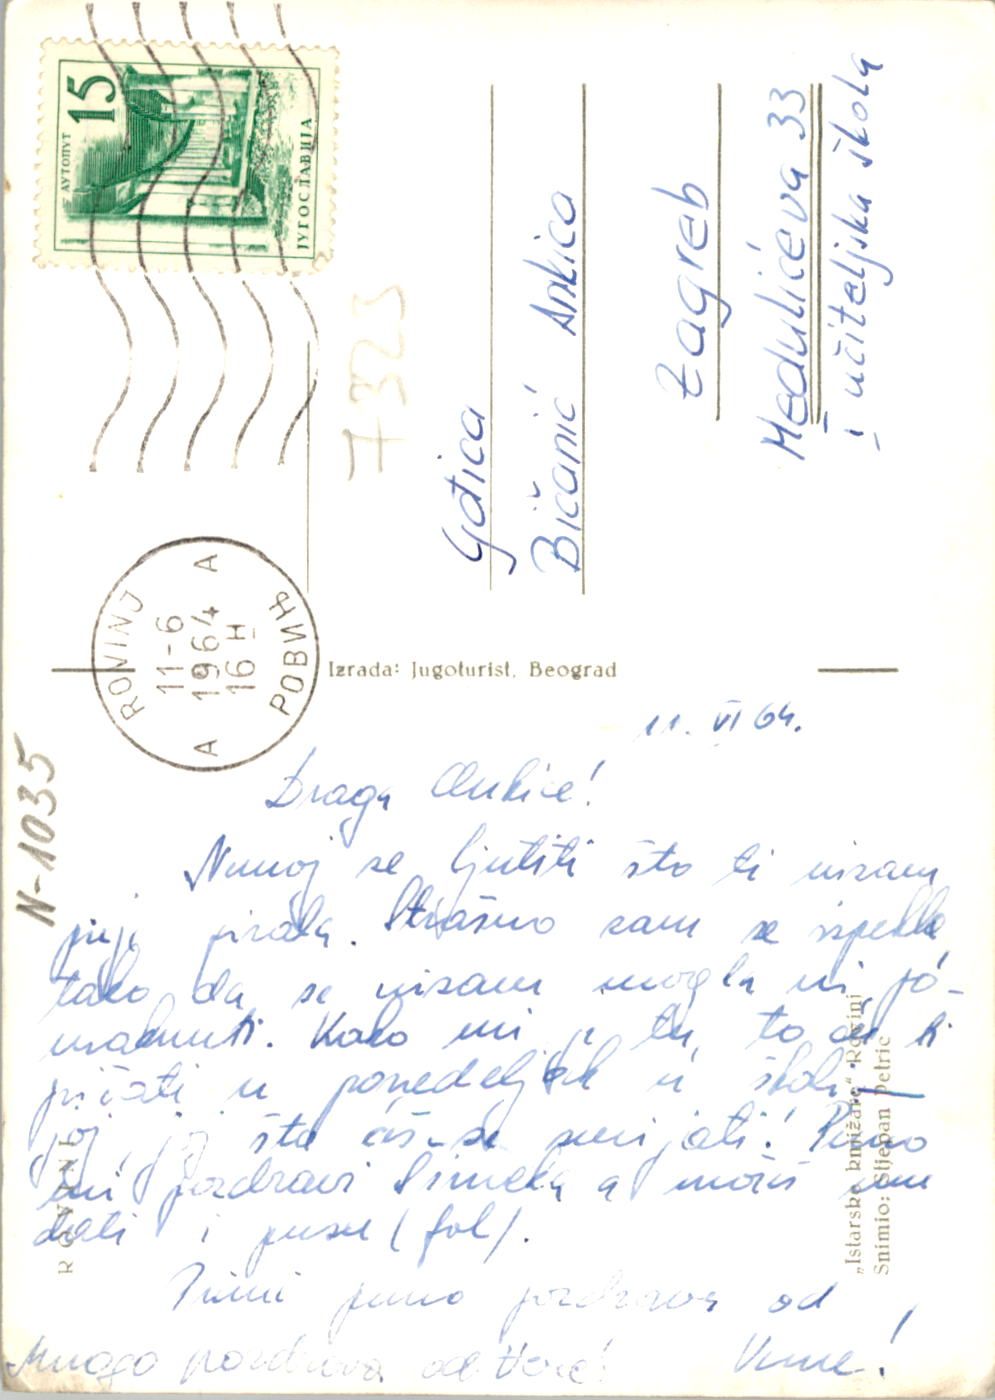 15
АУТОПУТ
ЈУГОСЛАВИЈА
ROVINJ
11-6
1964
16 H
A A
РОВИЊ
7323
Gđica
Bičanić Ankica
Zagreb
Medulićeva 33
I učiteljska škola
Izrada: Jugoturist, Beograd
N-1035
ROVINJ
„Istarska knjižara“ Rovinj
Snimio: Stjepan Petric
11. VI 64.
Draga Ankice!
Nemoj se ljutiti što ti nisam
prije pisala. Strašno sam se ispekla
tako da se nisam mogla ni po-
maknuti. Kako mi je tu, to ću ti
pričati u ponedeljak u školi
joj, joj šta ćeš se smijati! Puno
mi pozdravi Simeka a možeš mu
dati i puse (fol).
Primi puno pozdrava od
Mnogo pozdrava od